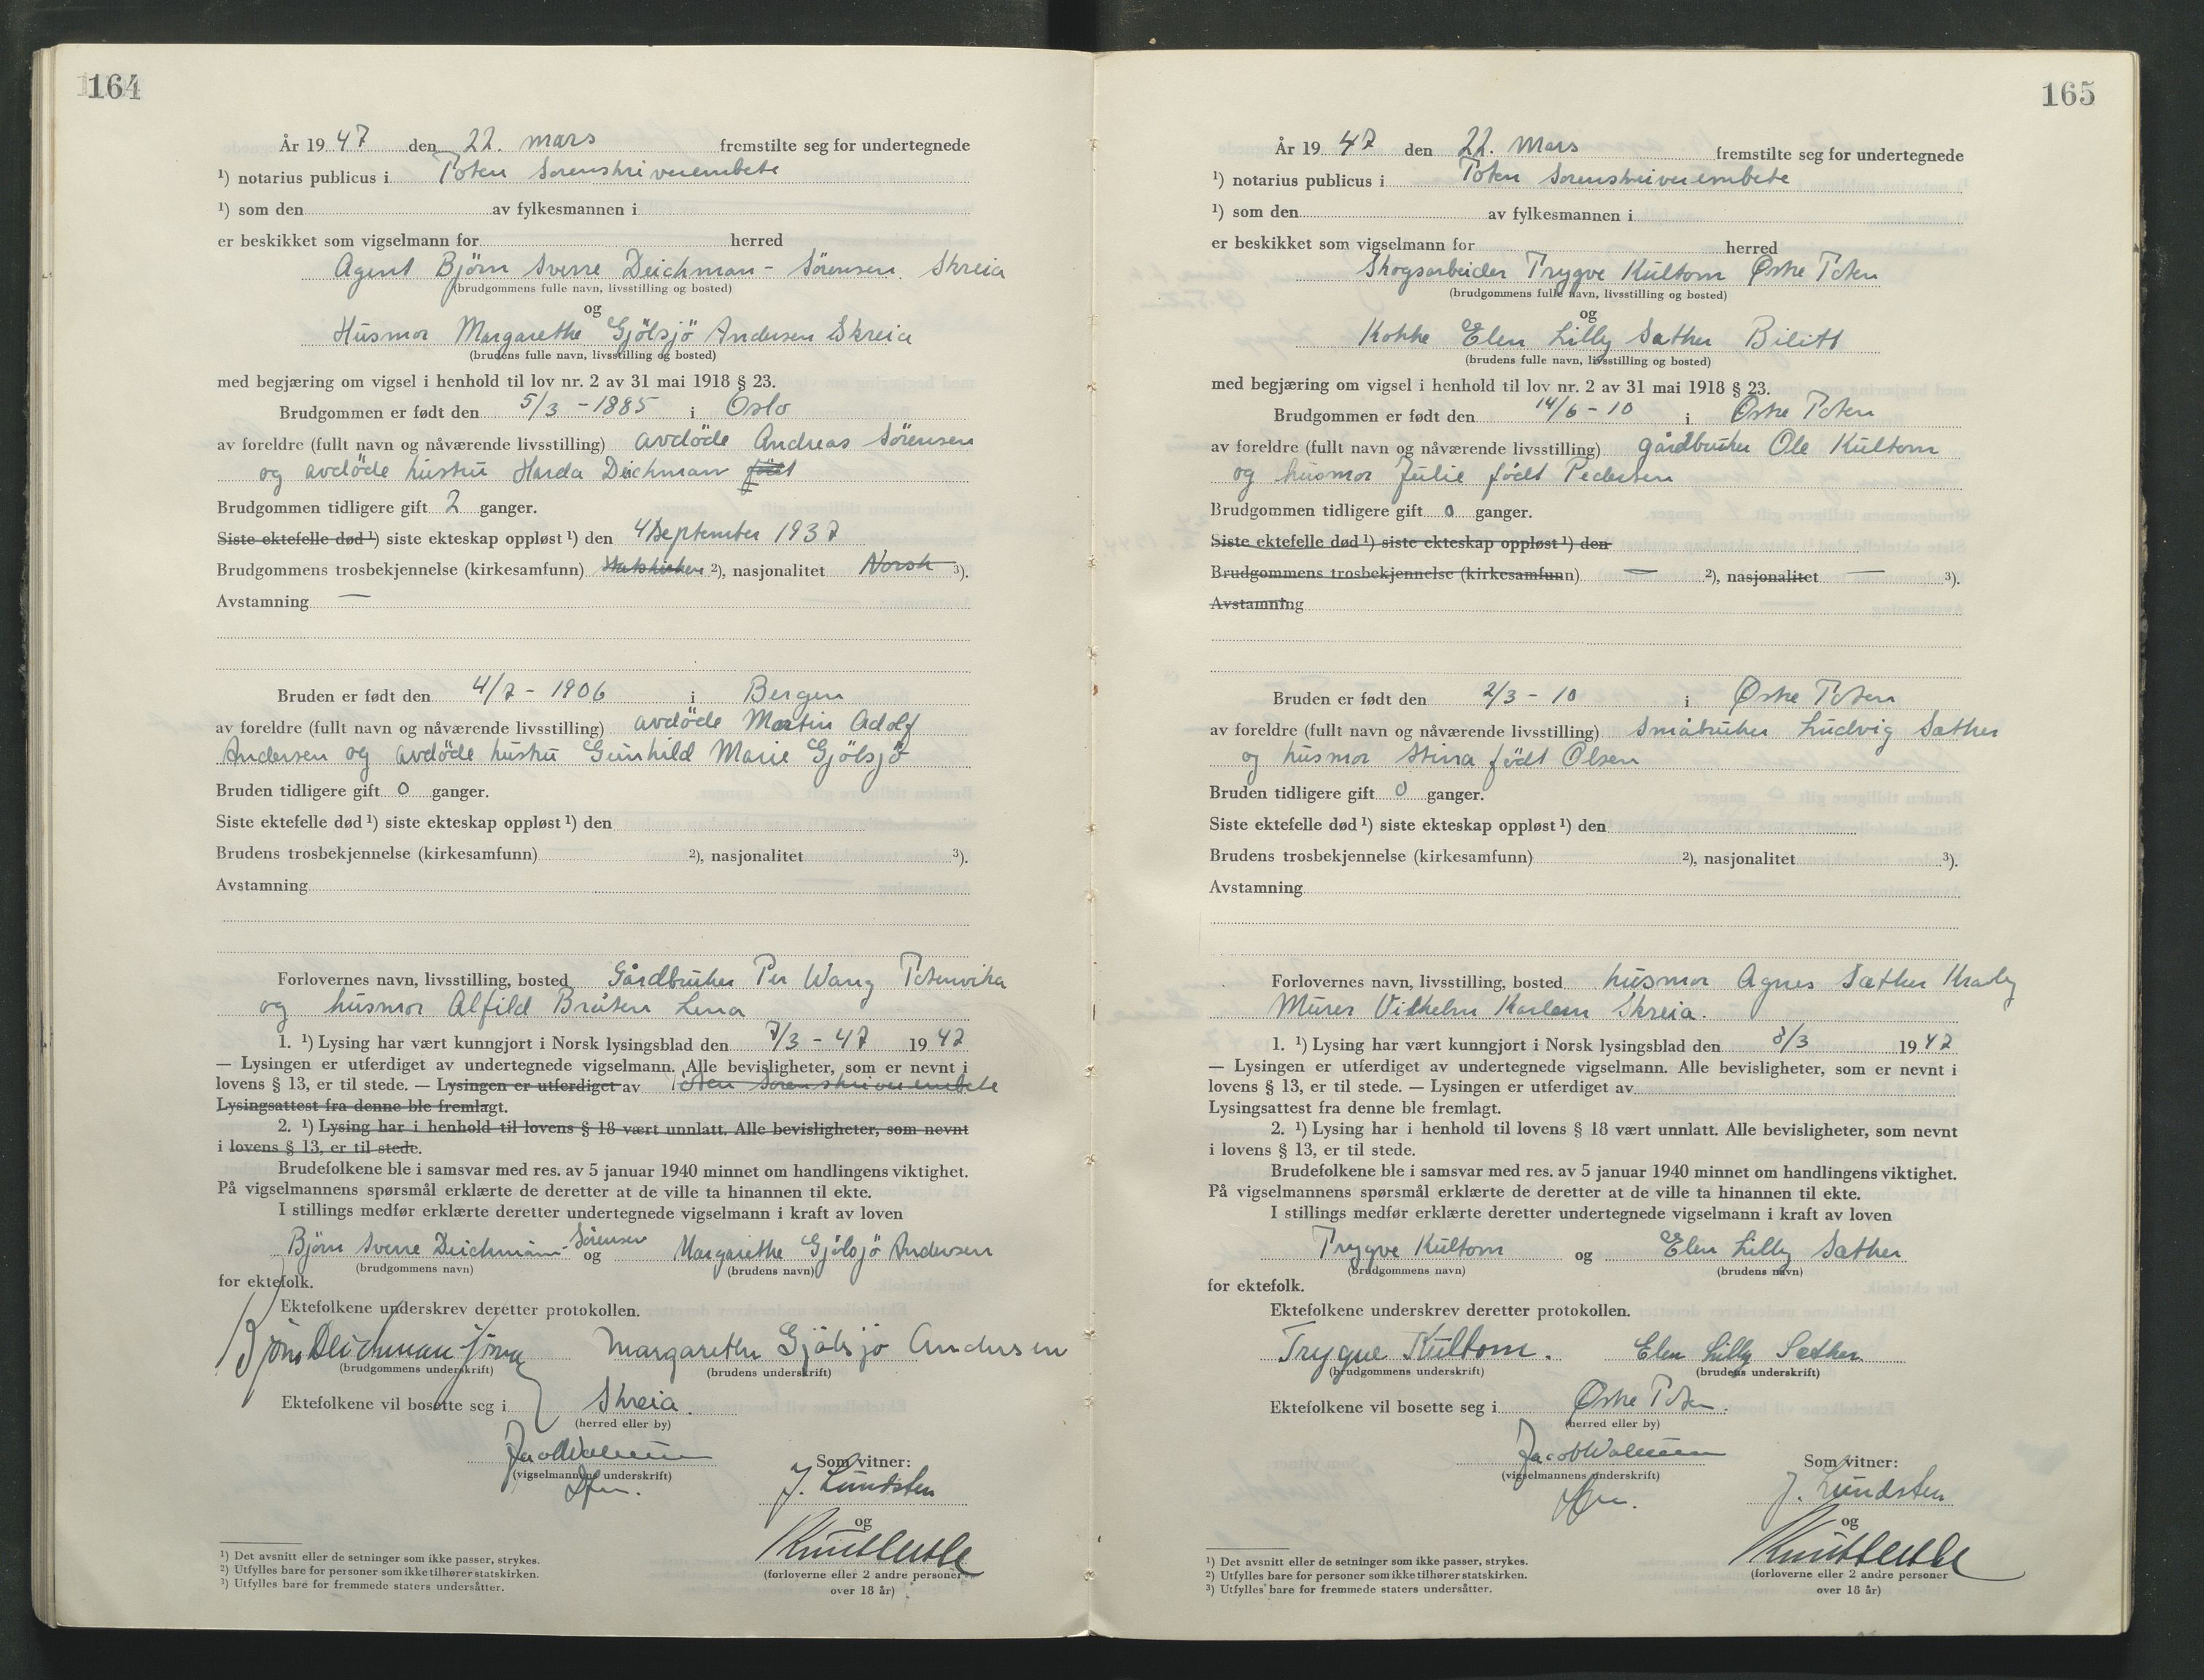 164
År 19 47 den 22. mars fremstilte seg for undertegnede
¹) notarius publicus i Toten Sorenskriverembete
¹) som den av fylkesmannen i
er beskikket som vigselmann for herred
Agent Björn Sverre Deichman - Sörensen. Skreia
(brudgommens fulle navn, livsstilling og bosted)
og
Husmor Margarethe Gjölsjö Andersen Skreia
(brudens fulle navn, livsstilling og bosted)
med begjæring om vigsel i henhold til lov nr. 2 av 31 mai 1918 § 23.
Brudgommen er født den 5/3 - 1885 i Oslo
av foreldre (fullt navn og nåværende livsstilling) avdöde Andreas Sörensen
og avdöde hustru Harda Deichman födt
Brudgommen tidligere gift 2 ganger.
Siste ektefelle død ¹) siste ekteskap oppløst ¹) den 4 September 1937
Brudgommens trosbekjennelse (kirkesamfunn) Statskirken ²), nasjonalitet Norsk ³).
Avstamning —
Bruden er født den 4/7 - 1906 i Bergen
av foreldre (fullt navn og nåværende livsstilling) avdöde Martin Adolf
Andersen og avdöde hustru Gunhild Marie Gjölsjö
Bruden tidligere gift 0 ganger.
Siste ektefelle død ¹) siste ekteskap oppløst ¹) den
Brudens trosbekjennelse (kirkesamfunn) ²), nasjonalitet ³).
Avstamning
Forlovernes navn, livsstilling, bosted Gårdbruker Per Wang Totenvika
og husmor Alfild Bråten Lena
1. ¹) Lysing har vært kunngjort i Norsk lysingsblad den 7/3 - 47 19 47
— Lysingen er utferdiget av undertegnede vigselmann. Alle bevisligheter, som er nevnt i
lovens § 13, er til stede. — Lysingen er utferdiget av Toten Sorenskriverembete
Lysingsattest fra denne ble fremlagt.
2. ¹) Lysing har i henhold til lovens § 18 vært unnlatt. Alle bevisligheter, som nevnt
i lovens § 13, er til stede.
Brudefolkene ble i samsvar med res. av 5 januar 1940 minnet om handlingens viktighet.
På vigselmannens spørsmål erklærte de deretter at de ville ta hinannen til ekte.
I stillings medfør erklærte deretter undertegnede vigselmann i kraft av loven
Björn Sverre Deichman - Sörensen og Margarethe Gjölsjö Andersen
(brudgommens navn) (brudens navn)
for ektefolk.
Ektefolkene underskrev deretter protokollen.
Björn Deichman-Sörensen Margarethe Gjölsjö Andersen
(brudgommens underskrift) (brudens underskrift)
Ektefolkene vil bosette seg i Skreia.
(herred eller by)
(vigselmannens underskrift)
Som vitner:
J. Lundsten
og
(forloverne eller 2 andre personer
over 18 år)
¹) Det avsnitt eller de setninger som ikke passer, strykes.
²) Utfylles bare for personer som ikke tilhører statskirken.
³) Utfylles bare for fremmede staters undersåtter.
165
År 19 47 den 22. Mars fremstilte seg for undertegnede
¹) notarius publicus i Toten Sorenskriverembete
¹) som den av fylkesmannen i
er beskikket som vigselmann for herred
Skogsarbeider Trygve Kultom Østre Toten
(brudgommens fulle navn, livsstilling og bosted)
og
Kokke Elen Lilly Sæther Bilitt
(brudens fulle navn, livsstilling og bosted)
med begjæring om vigsel i henhold til lov nr. 2 av 31 mai 1918 § 23.
Brudgommen er født den 14/6 - 10 i Østre Toten
av foreldre (fullt navn og nåværende livsstilling) gårdbruker Ole Kultom
og husmor Julie født Pedersen
Brudgommen tidligere gift 0 ganger.
Siste ektefelle død ¹) siste ekteskap oppløst ¹) den
Brudgommens trosbekjennelse (kirkesamfunn) — ²), nasjonalitet — ³).
Avstamning
Bruden er født den 2/3 - 10 i Østre Toten
av foreldre (fullt navn og nåværende livsstilling) småbruker Ludvig Sæther
og husmor Stina født Olsen
Bruden tidligere gift 0 ganger.
Siste ektefelle død ¹) siste ekteskap oppløst ¹) den
Brudens trosbekjennelse (kirkesamfunn) ²), nasjonalitet ³).
Avstamning
Forlovernes navn, livsstilling, bosted husmor Agnes Sæther Kraby
Murer Vilhelm Karlsen Skreia.
1. ¹) Lysing har vært kunngjort i Norsk lysingsblad den 8/3 19 47
— Lysingen er utferdiget av undertegnede vigselmann. Alle bevisligheter, som er nevnt i
lovens § 13, er til stede. — Lysingen er utferdiget av
Lysingsattest fra denne ble fremlagt.
2. ¹) Lysing har i henhold til lovens § 18 vært unnlatt. Alle bevisligheter, som nevnt
i lovens § 13, er til stede.
Brudefolkene ble i samsvar med res. av 5 januar 1940 minnet om handlingens viktighet.
På vigselmannens spørsmål erklærte de deretter at de ville ta hinannen til ekte.
I stillings medfør erklærte deretter undertegnede vigselmann i kraft av loven
Trygve Kultom og Elen Lilly Sæther
(brudgommens navn) (brudens navn)
for ektefolk.
Ektefolkene underskrev deretter protokollen.
Trygve Kultom. Elen Lilly Sæther
(brudgommens underskrift) (brudens underskrift)
Ektefolkene vil bosette seg i Østre Toten.
(herred eller by)
(vigselmannens underskrift)
Som vitner:
J. Lundsten
og
(forloverne eller 2 andre personer
over 18 år)
¹) Det avsnitt eller de setninger som ikke passer, strykes.
²) Utfylles bare for personer som ikke tilhører statskirken.
³) Utfylles bare for fremmede staters undersåtter.